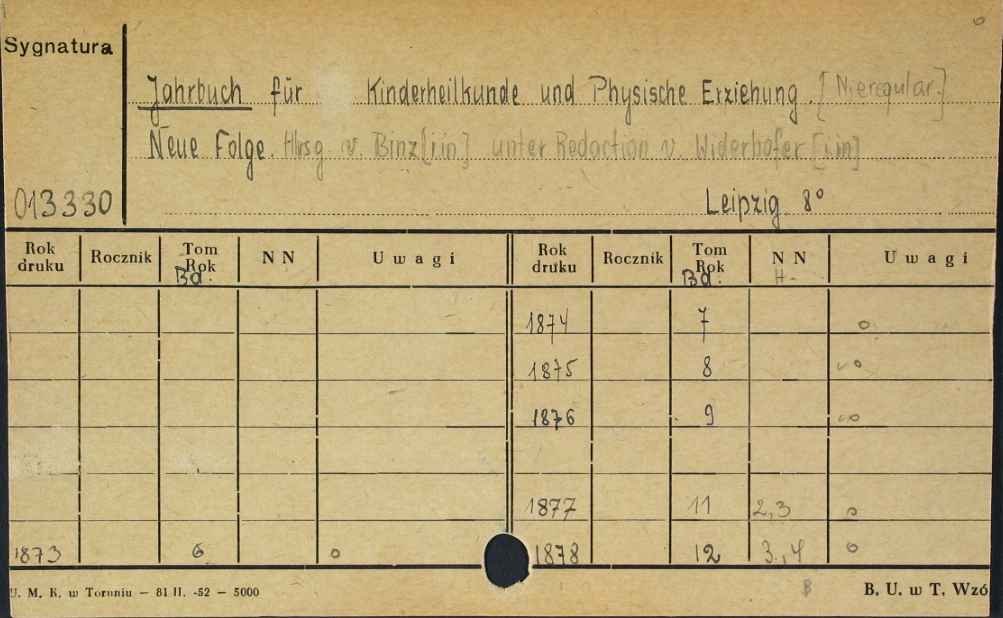 Sygnatura
Jahrbuch für Kinderheilkunde und Physische Erziehung. [Nieregular.]
Neue Folge. Hrsg v. Binz[iin] unter Redaction v. Widerhofer [iin]
013330 Leipzig 8°
Rok druku Rocznik Tom Rok Bd. NN Uwagi Rok druku Rocznik Tom Rok Bd. NN H- Uwagi
1874 7 o
1875 8 o
1876 9
1877 11 2,3 o
1873 6 o 1878 12 3.,4 o
U. M. K. w Toruniu — 81 II. -52 — 5000 B B. U. w T. Wzó